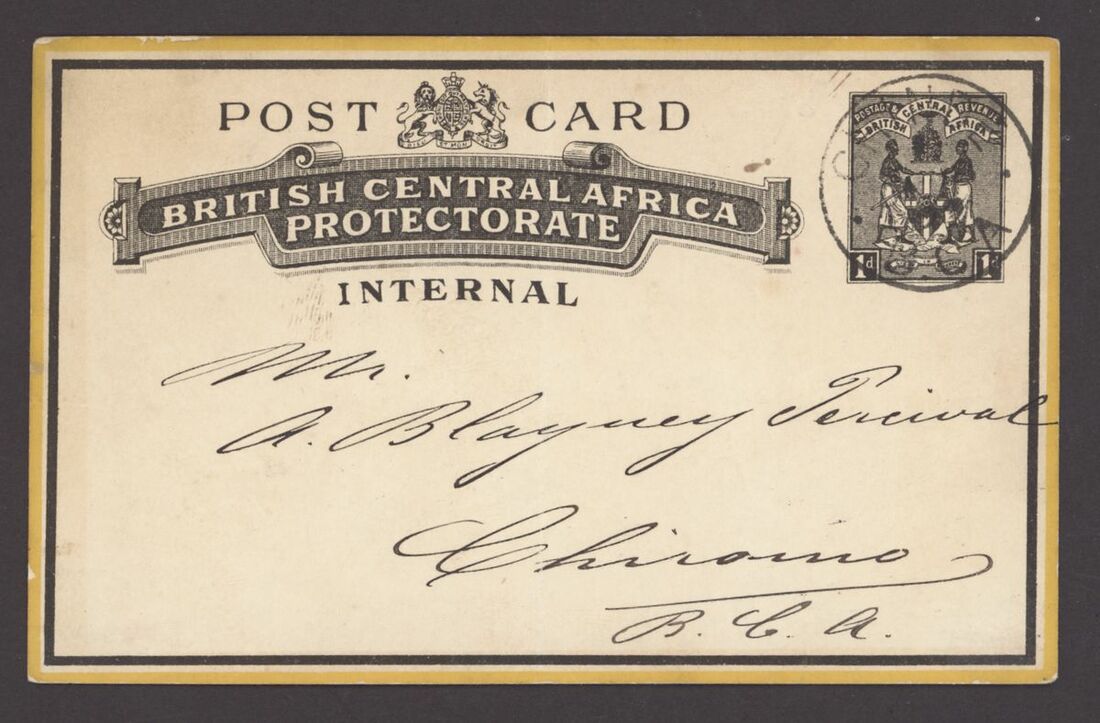 POST CARD
BRITISH CENTRAL AFRICA
PROTECTORATE
INTERNAL
POSTAGE & REVENUE
CENTRAL
BRITISH AFRICA
1d 1d
B.C.A.
Mr.
A. Blayney Percival
Chiromo
B. C. A.